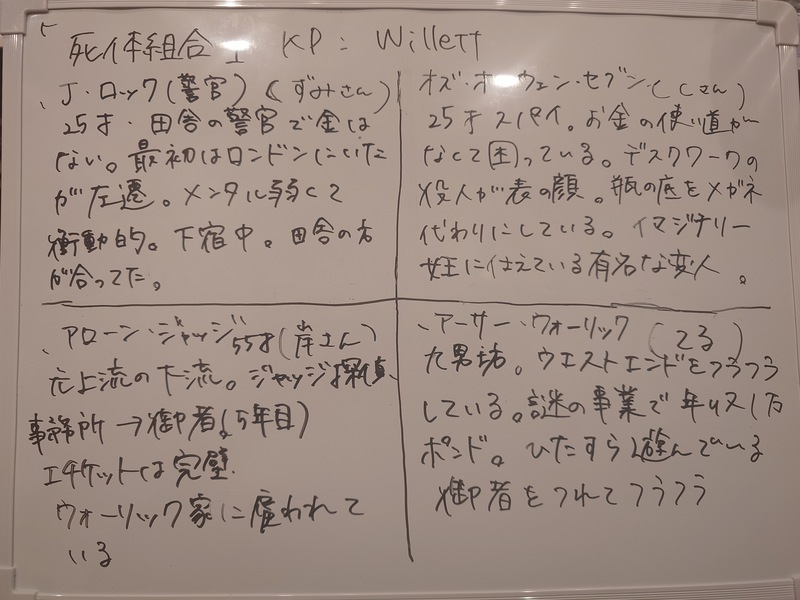 死体組合 I KP: Willett
、J・ロック(警官)(ずみさん)
25才・田舎の警官で金は
ない。最初はロンドンにいた
が左遷。メンタル弱くて
衝動的。下宿中。田舎の方
が合ってた。
オズ・オーウェン・セブン(Cさん)
25才スパイ。お金の使い道が
なくて困っている。デスクワークの
役人が表の顔。瓶の底をメガネ
代わりにしている。イマジナリー
女王に仕えている有名な変人。
、アローン・ジャッジ55才(岸さん)
元上流の下流。ジャッジ探偵
事務所→御者(5年目)
エチケットは完璧.
ウォーリック家に雇われて
いる
、アーサー・ウォーリック(てる)
九男坊。ウエストエンドをフラフラ
している。謎の事業で年収1万
ポンド。ひたすら遊んでいる
御者をつれてフラフラ